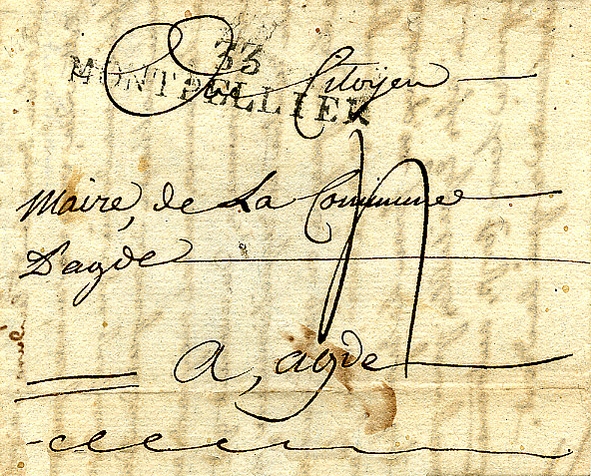 33
MONTPELLIER
Au Citoyen
Maire, de La Commune
D'agde
A, agde